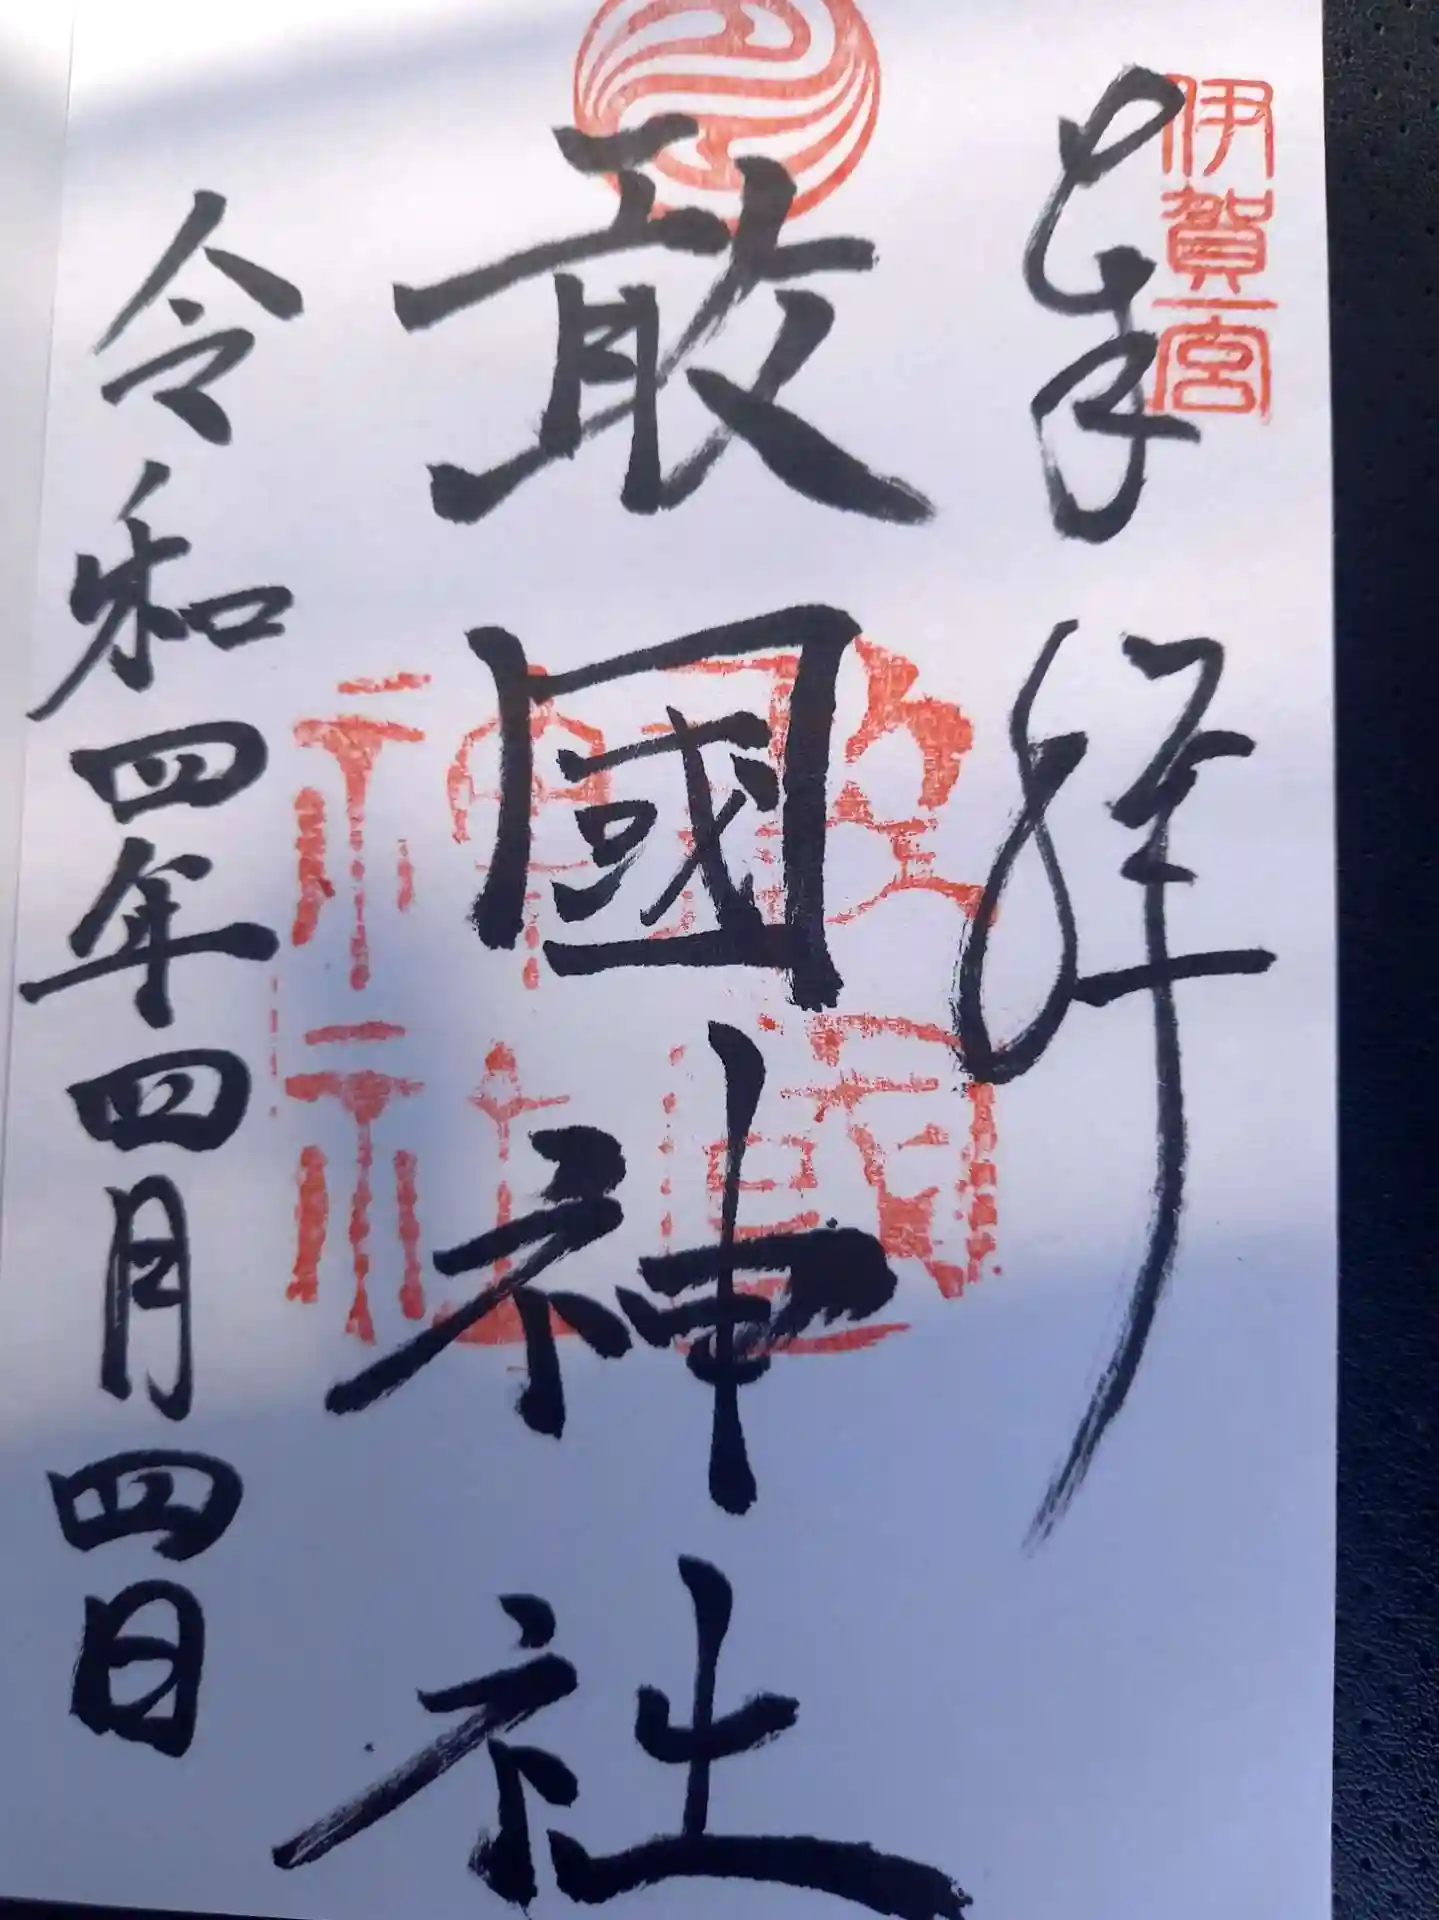 奉拝
伊賀一宮
敢國神社
令和四年四月四日